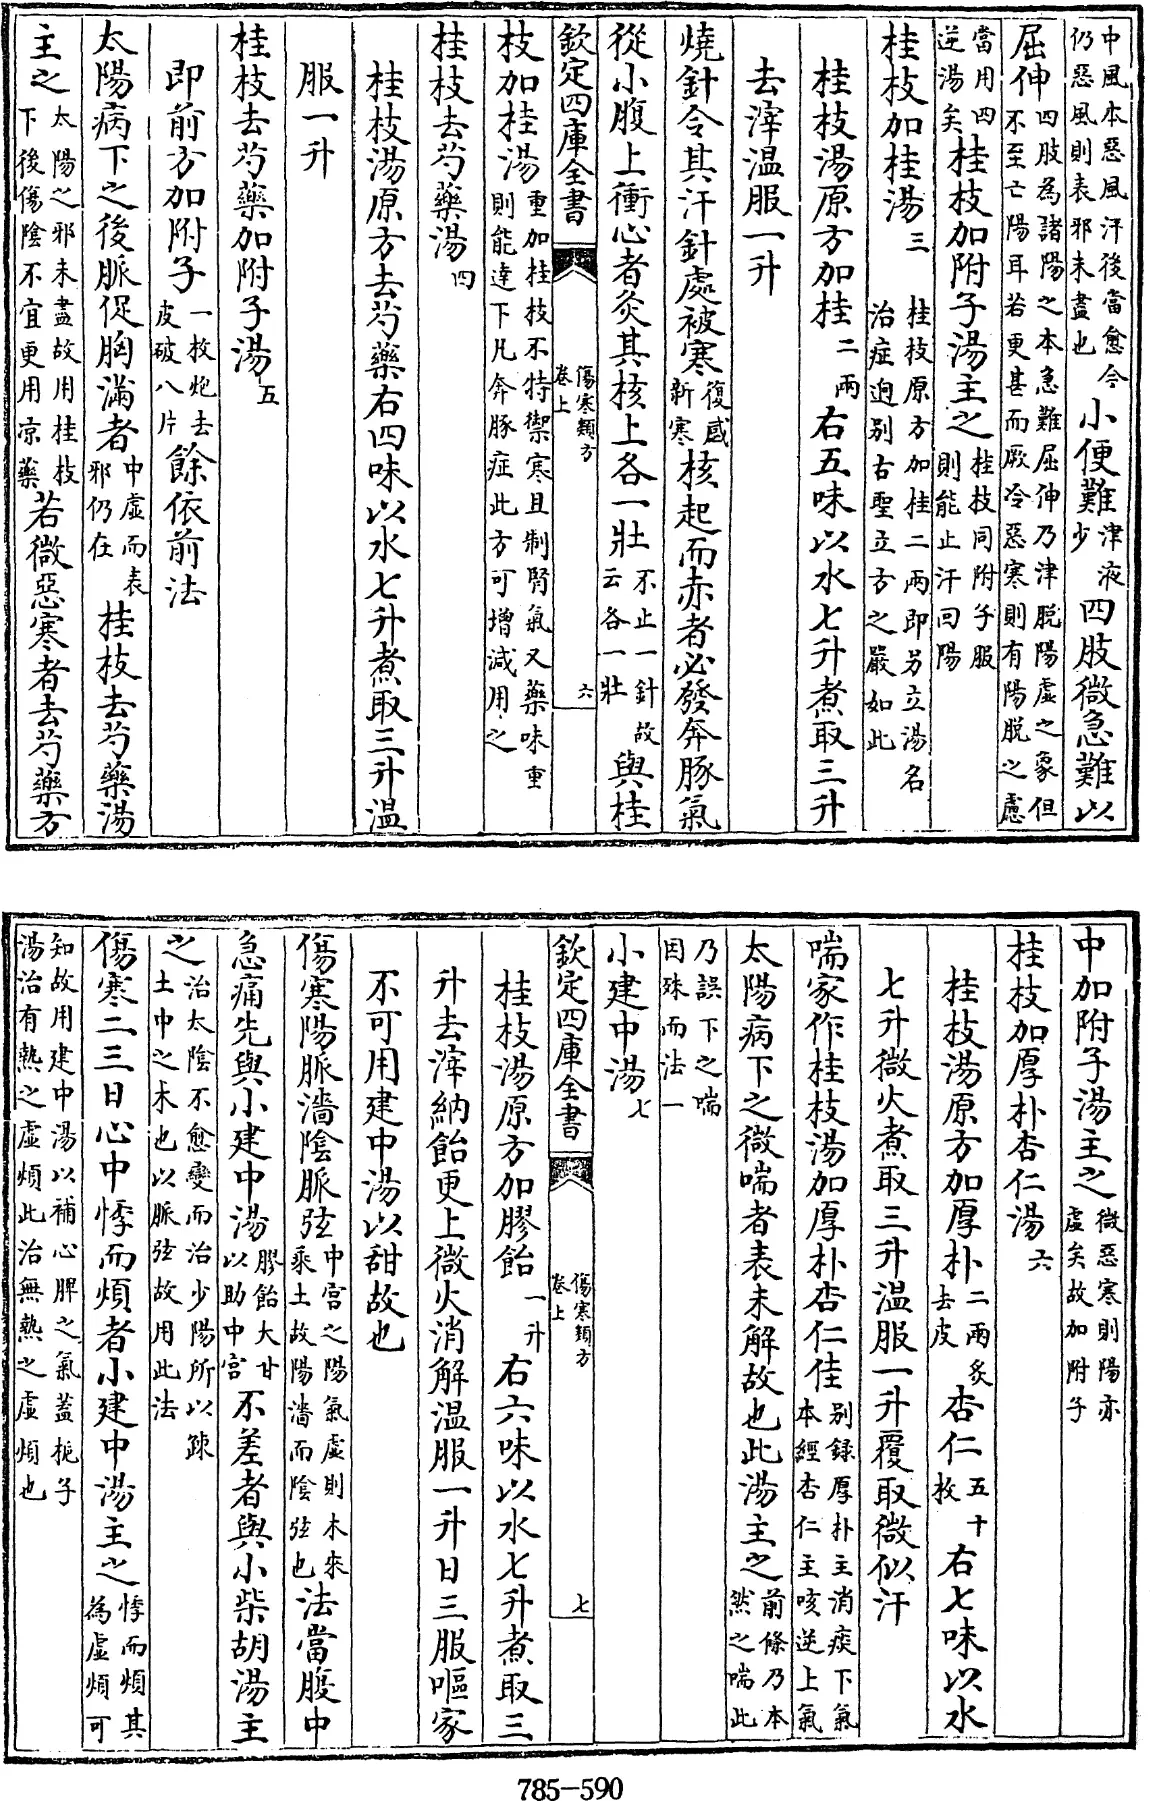 中風本惡風汗後當愈今仍惡風則表邪未盡也小便難津液少四肢微急難以
屈伸四肢為諸陽之本急難屈伸乃津脱陽虛之象但不至亡陽耳若更甚而厥冷惡寒則有陽脱之慮
當用四逆湯矣桂枝加附子湯主之桂枝同附子服則能止汗回陽
桂枝加桂湯三桂枝原方加桂二兩即另立湯名治症迥别古聖立方之嚴如此
桂枝湯原方加桂二兩右五味以水七升煮取三升
去滓温服一升
燒針令其汗針處被寒復感新寒核起而赤者必發奔豚氣
從小腹上衝心者灸其核上各一壯不止一針故云各一壯與桂
欽定四庫全書
傷寒類方卷上
六
枝加桂湯重加桂枝不特禦寒且制腎氣又藥味重則能達下凡奔豚症此方可增減用之
桂枝去芍藥湯四
桂枝湯原方去芍藥右四味以水七升煮取三升温
服一升
桂枝去芍藥加附子湯五
即前方加附子一枚炮去皮破八片餘依前法
太陽病下之後脈促胸滿者中虛而表邪仍在桂枝去芍藥湯
主之太陽之邪未盡故用桂枝下後傷陰不宜更用凉藥若微惡寒者去芍藥方
中加附子湯主之微惡寒則陽亦虛矣故加附子
桂枝加厚朴杏仁湯六
桂枝湯原方加厚朴二兩炙去皮杏仁五十枚右七味以水
七升微火煮取三升温服一升覆取微似汗
喘家作桂枝湯加厚朴杏仁佳别録厚朴主消痰下氣本經杏仁主咳逆上氣
太陽病下之微喘者表未解故也此湯主之前條乃本然之喘此
乃誤下之喘因殊而法一
小建中湯七
欽定四庫全書
傷寒類方卷上
七
桂枝湯原方加膠飴一升右六味以水七升煮取三
升去滓納飴更上微火消解温服一升日三服嘔家
不可用建中湯以甜故也
傷寒陽脈濇陰脈弦中宮之陽氣虛則木來乘土故陽濇而陰弦也法當腹中
急痛先與小建中湯膠飴大甘以助中宮不差者與小柴胡湯主
之治太陰不愈變而治少陽所以疎土中之木也以脈弦故用此法
傷寒二三日心中悸而煩者小建中湯主之悸而煩其為虛煩可
知故用建中湯以補心脾之氣葢梔子湯治有熱之虛煩此治無熱之虛煩也
785-590